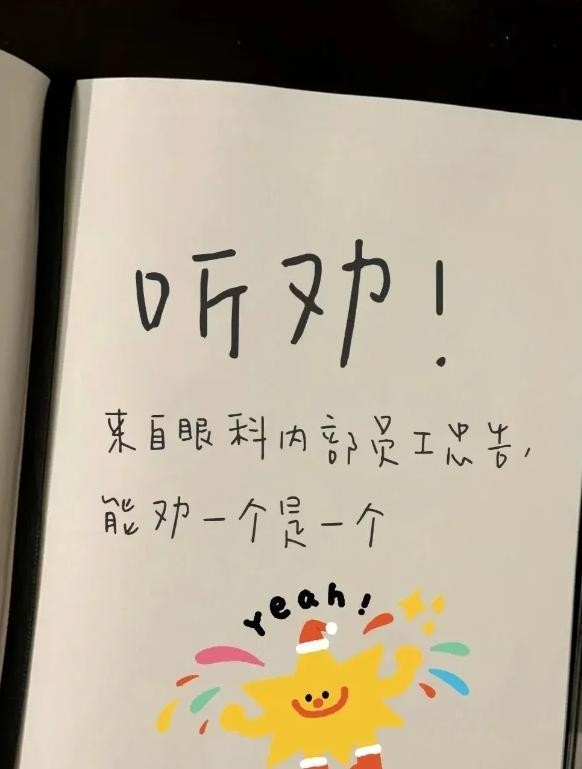 听劝！
来自眼科内部员工忠告，
能劝一个是一个
yeah!